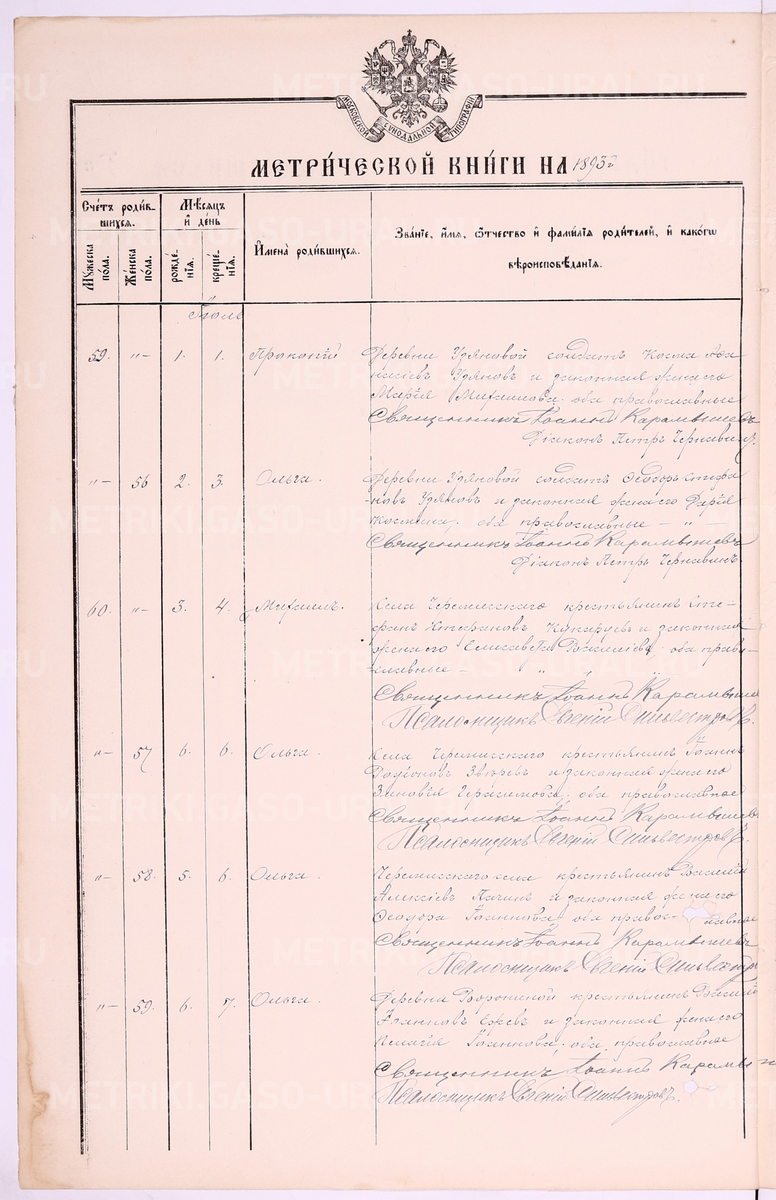 МОСКОВСКОЙ СѴНОДАЛЬНОЙ ТИПОГРАФІИ
МЕТРИ́ЧЕСКОЙ КНИ́ГИ НА 1893 й
Сче́тъ роди́вшихся.
Мꙋ́жеска по́ла.
Же́нска по́ла.
Мѣ́сяцъ и҆ де́нь
рожде́нія.
креще́нія.
И҆мена̀ роди́вшихся.
Зва́нїе, и҆́мѧ, ѻ҆́тчество и҆ фами́лїѧ роди́телей, и҆ како́гѡ
вѣроисповѣ́данїѧ.
Іюль
59. "– 1. 1. Прокопій Деревни Удяновой солдатъ Косма
Удяновъ и законная жена его
Марія Михаилова, оба православные
Священникъ Іоаннъ Карамышевъ
Діаконъ Петръ Чернавинъ.
"– 56 2. 3. Ольга. Деревни Удяновой солдатъ Ѳеодоръ Стефа
новъ Удяновъ и законная жена его Дарія
Космина, оба православные – " –
Священникъ Іоаннъ Карамышевъ
Діаконъ Петръ Чернавинъ.
60. "– 3. 4. Михаилъ. Села Черемисскаго крестьянинъ Сте-
фанъ и законная
жена его Елисавета Василіева, оба право-
славные – " "
Священникъ Іоаннъ Карамышевъ
Псаломщикъ Евгеній Сильвестровъ.
"– 57 6. 6. Ольга. Села Черемисскаго крестьянинъ Іоаннъ
Родіоновъ Звѣревъ и законная жена его
Зиновія Герасимова, оба православные
Священникъ Іоаннъ Карамышевъ
Псаломщикъ Евгеній Сильвестровъ.
"– 58. 5. 6. Ольга. Черемисскаго села крестьянинъ Василій
Алексіевъ и законная жена его
Ѳеодора Іоаннова, оба православные
Священникъ Іоаннъ Карамышевъ
Псаломщикъ Евгеній Сильвестровъ
"– 59. 6. 7. Ольга. Деревни Ворониной крестьянинъ Василій
Іоанновъ Ежевъ и законная жена его
Пелагія Іоаннова, оба православные
Священникъ Іоаннъ Карамышевъ
Псаломщикъ Евгеній Сильвестровъ.
METRIKI.GASO-URAL.RU